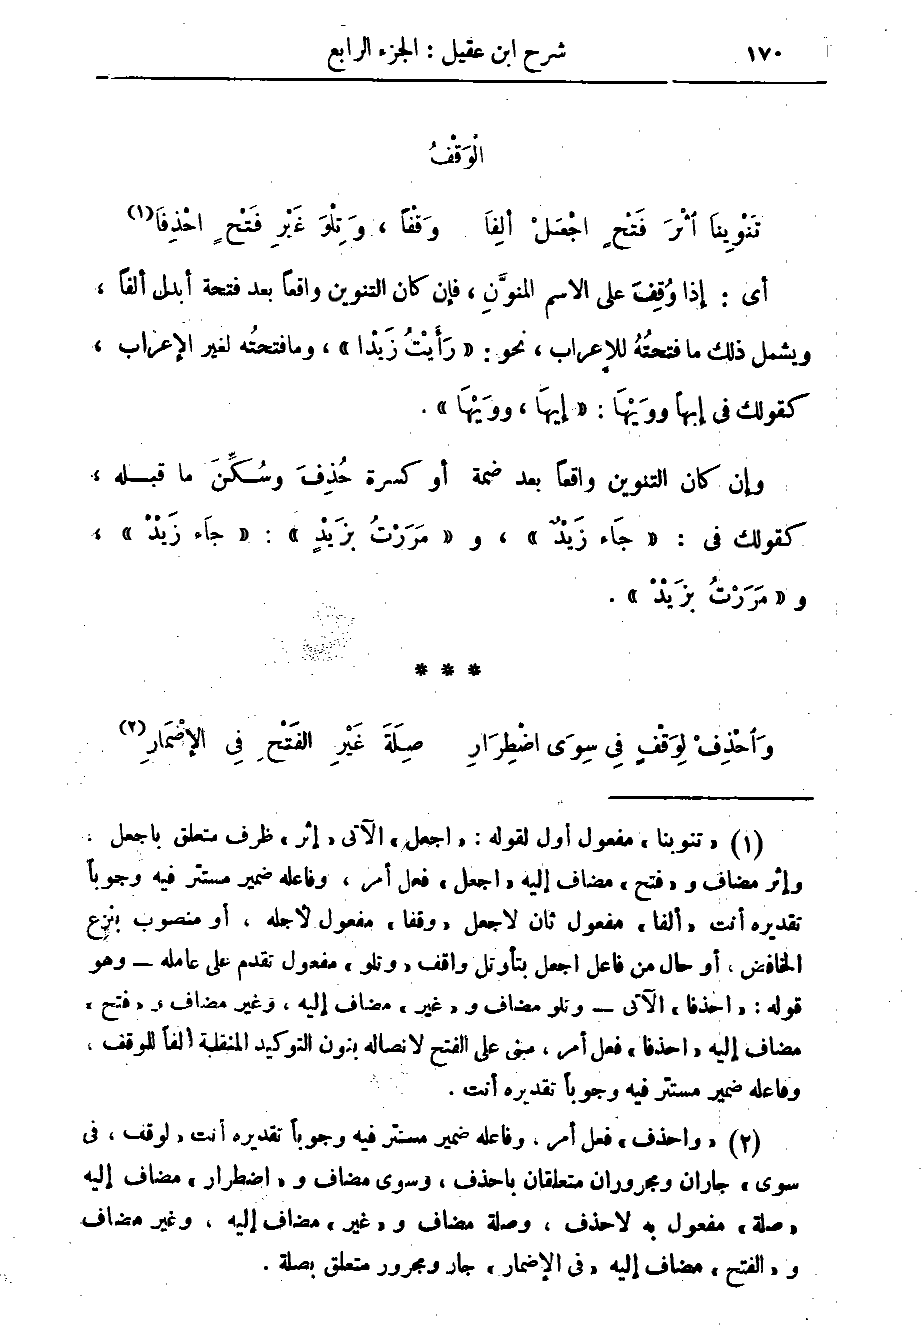 ١٧٠ شرح ابن عقيل : الجزء الرابع
الْوَقْفُ
تَنْوِيناً أَثْرَ فَتْحٍ اجْعَلْ أَلِفَا وَقْفاً ، وَتِلْوَ غَيْرِ فَتْحٍ احْذِفَا(١)
أى : إذا وُقِفَ على الاسم المنوَّنِ ، فإن كان التنوين واقعاً بعد فتحة أبدل ألفاً ،
ويشمل ذلك ما فتحتُهُ للإعراب ، نحو : « رَأَيْتُ زَيْدَا » ، وما فتحتُه لغير الإعراب ،
كقولك فى إيهاً ووَيْهاً : « إيهَا ، ووَيْهَا » .
وإن كان التنوين واقعاً بعد ضمة أو كسرة حُذِفَ وسُكِّنَ ما قبله ،
كقولك فى : « جَاء زَيْدٌ » ، و « مَرَرْتُ بزَيْدٍ » : « جَاء زَيْدْ » ،
و « مَرَرْتُ بزَيْدْ » .
* * *
وَاحْذِفْ لِوَقْفٍ فِي سِوَى اضْطِرَارِ صِلَةَ غَيْرِ الفَتْحِ فِى الإِضْمَارِ(٢)
(١) « تنوينا » مفعول أول لقوله : « اجعل » الآتى « إثر » ظرف متعلق باجعل ،
وإثر مضاف و « فتح » مضاف إليه « اجعل » فعل أمر ، وفاعله ضمير مستتر فيه وجوباً
تقديره أنت « ألفا » مفعول ثان لاجعل « وقفا » مفعول لأجله ، أو منصوب بنزع
الخافض ، أو حال من فاعل اجعل بتأوئل واقف « وتلو » مفعول تقدم على عامله — وهو
قوله : « احذفا » الآتى — وتلو مضاف و « غير » مضاف إليه ، وغير مضاف و « فتح »
مضاف إليه « احذفا » فعل أمر ، مبنى على الفتح لاتصاله بنون التوكيد المنقلبة ألفاً للوقف ،
وفاعله ضمير مستتر فيه وجوباً تقديره أنت .
(٢) « واحذف » فعل أمر ، وفاعله ضمير مستتر فيه وجوباً تقديره أنت « لوقف ، فى
سوى » جاران ومجروران متعلقان باحذف ، وسوى مضاف و « اضطرار » مضاف إليه
« صلة » مفعول به لاحذف ، وصلة مضاف و « غير » مضاف إليه ، وغير مضاف
و « الفتح » مضاف إليه « فى الإضمار » جار ومجرور متعلق بصلة .